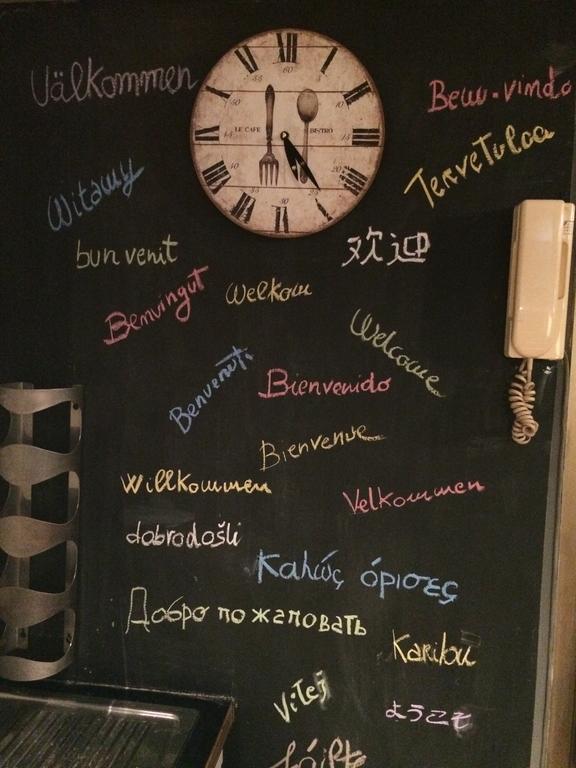 Välkommen
60
55
50
10
15
20
25
30
35
40
45
LE CAFE
BISTRO
Benvindo
TerveTuloa
Witamy
bun venit
欢迎
Benvingut
Welkom
Welcome
Benvenuti
Bienvenido
Bienvenue
Willkommen
Velkommen
dobrodošli
Καλώς όρισες
Добро пожаловать
Karibu
Vitej
ようこそ